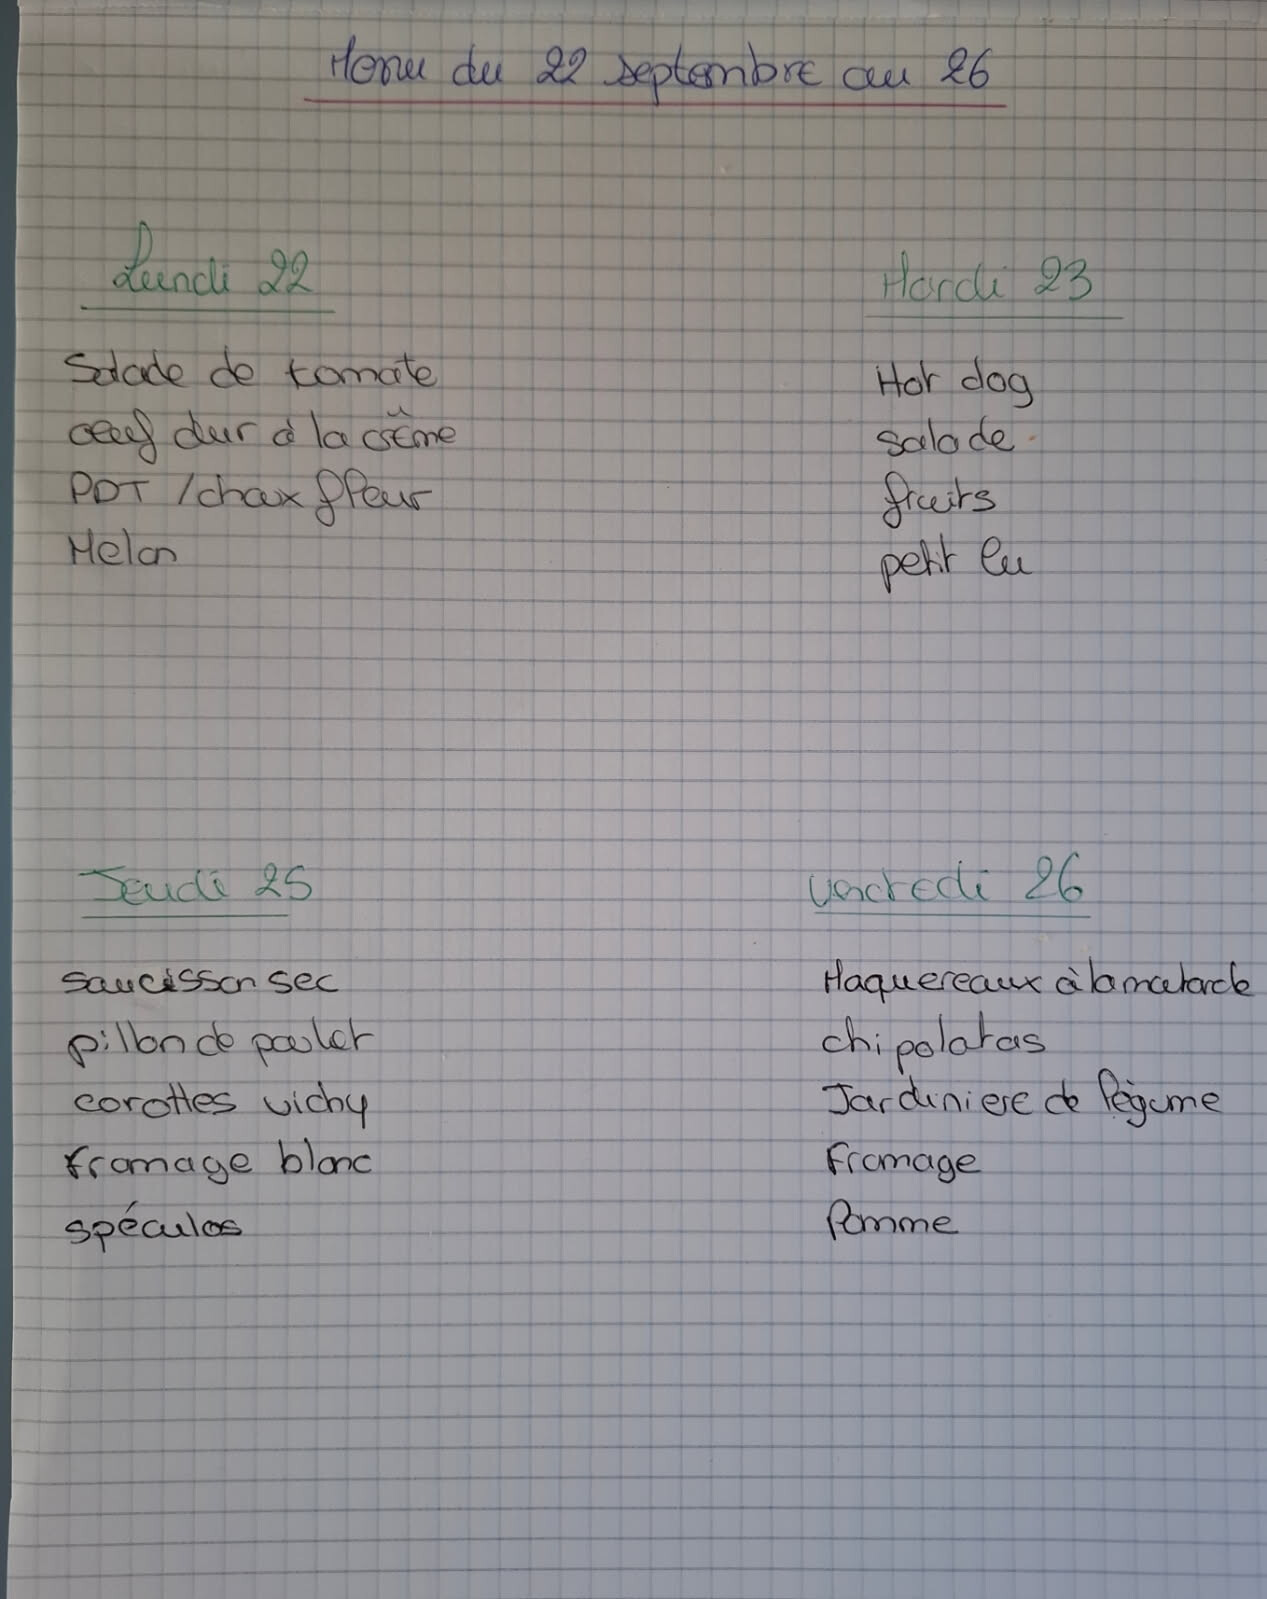 Menu du 22 septembre au 26
Lundi 22
Salade de tomate
œuf dur à la crême
PDT / choux fleur
Melon
Mardi 23
Hot dog
salade
fruits
petit lu
Jeudi 25
saucisson sec
pillon de poulet
carottes vichy
fromage blanc
spéculos
Vendredi 26
Maquereaux à la moutarde
chipolatas
Jardiniere de légume
Fromage
Pomme